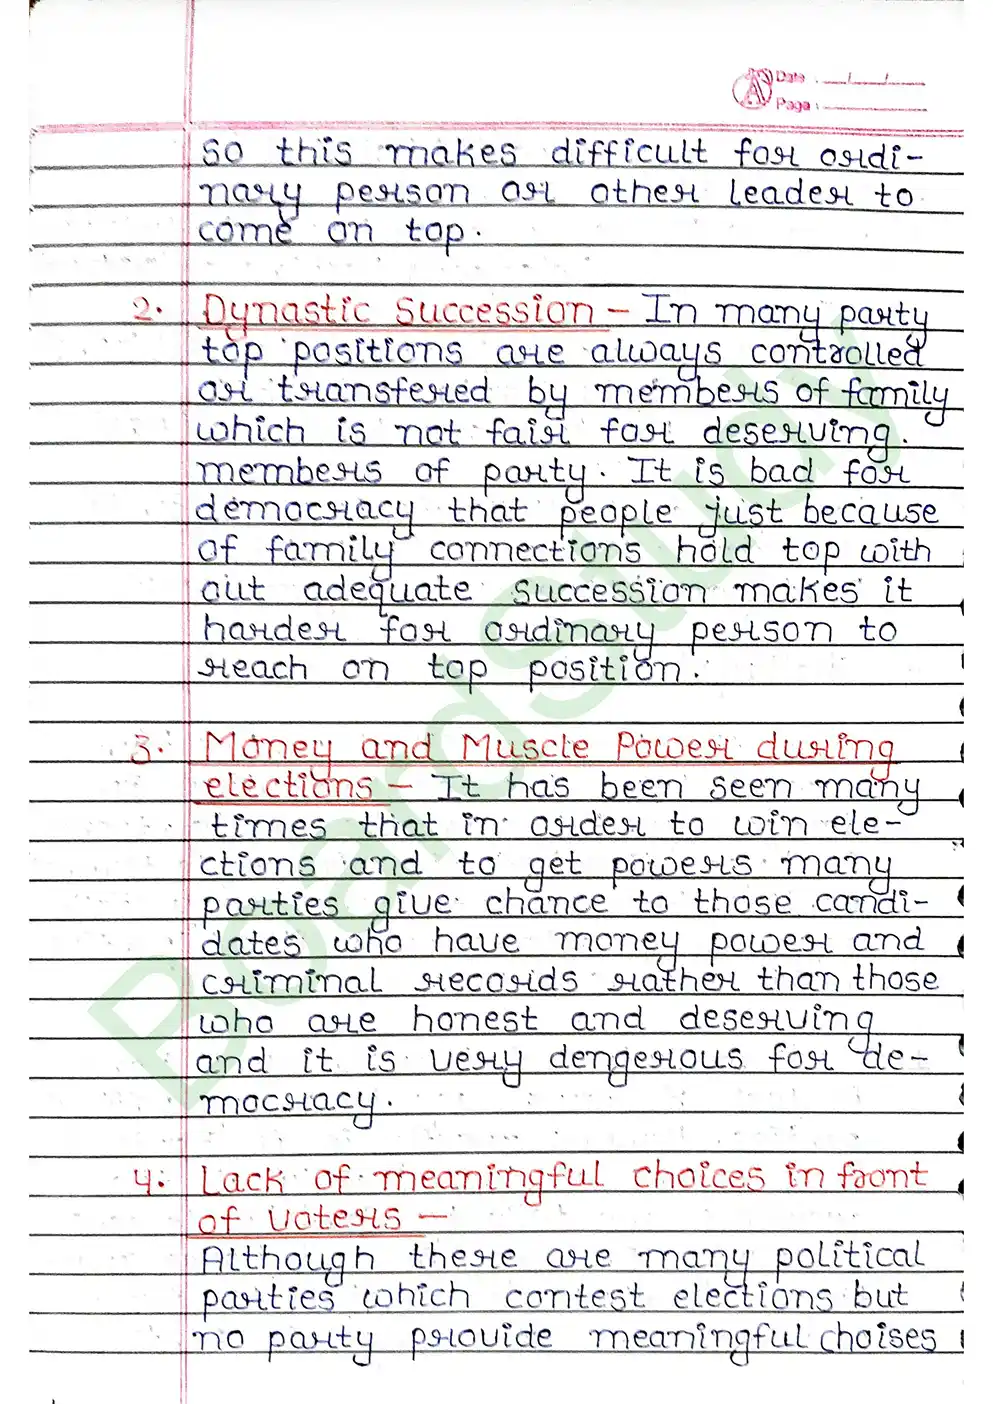 Date : __/__/__
Page :
So this makes difficult for ordi-
nary person or other leader to
come on top.
2. Dynastic Succession - In many party
top positions are always controlled
or transfered by members of family
which is not fair for deserving.
members of party. It is bad for
democracy that people just because
of family connections hold top with
out adequate succession makes it
harder for ordinary person to
reach on top position.
3. Money and Muscle Power during
elections - It has been seen many
times that in order to win ele-
ctions and to get powers many
parties give chance to those candi-
dates who have money power and
criminal records rather than those
who are honest and deserving
and it is very dengerous for de-
mocracy.
4. Lack of meaningful choices in front
of voters -
Although there are many political
parties which contest elections but
no party provide meaningful choises
BoardStudy